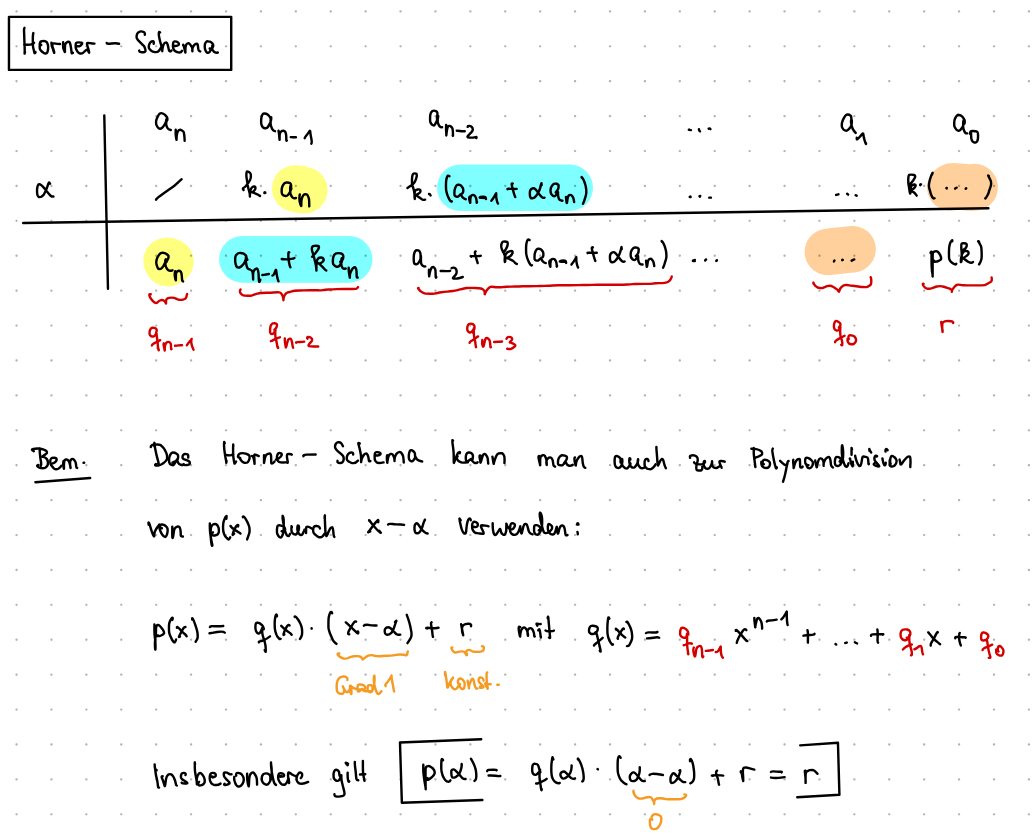 Horner - Schema
aₙ aₙ₋₁ aₙ₋₂ ... a₁ a₀
α / k·aₙ k·(aₙ₋₁ + αaₙ) ... ... k·(...)
aₙ aₙ₋₁ + kaₙ aₙ₋₂ + k(aₙ₋₁ + αaₙ) ... ... p(k)
qₙ₋₁ qₙ₋₂ qₙ₋₃ q₀ r
Bem. Das Horner - Schema kann man auch zur Polynomdivision
von p(x) durch x-α verwenden:
p(x) = q(x)·(x-α) + r mit q(x) = qₙ₋₁ xⁿ⁻¹ + ... + q₁x + q₀
Grad 1 konst.
Insbesondere gilt p(α) = q(α)·(α-α) + r = r
0